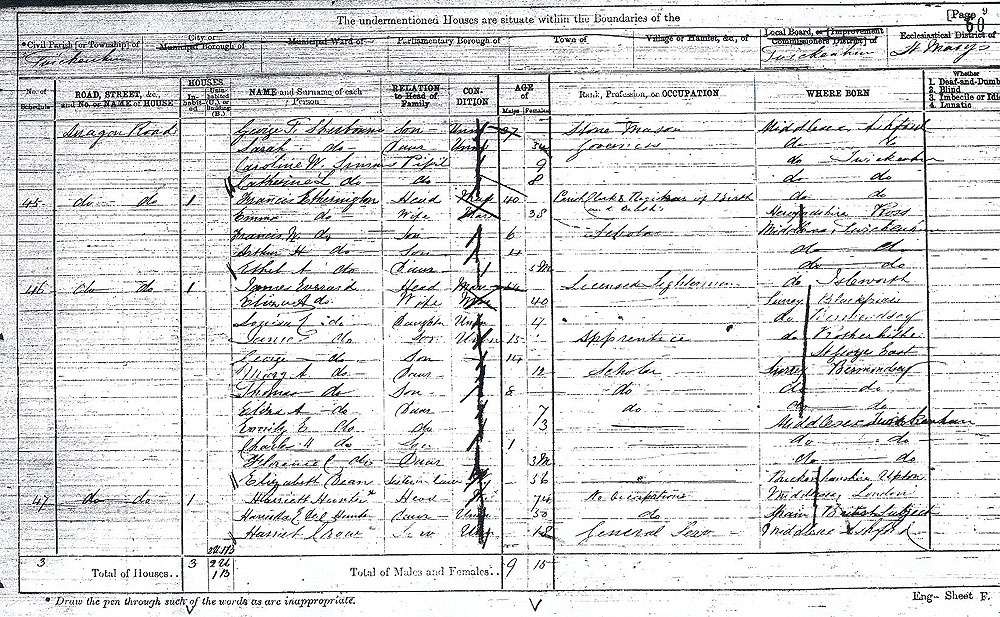 [Page 9
60
The undermentioned Houses are situate within the Boundaries of the
*Civil Parish [or Township] of
City or Municipal Borough of
Municipal Ward of
Parliamentary Borough of
Town of
Village or Hamlet, &c., of
Local Board, or [Improvement Commissioners District] of
Ecclesiastical District of
Twickenham
Twickenham
St Mary's
No. of Schedule
ROAD, STREET, &c., and No. or NAME of HOUSE
HOUSES
Inhabited
Uninhabited (U.), or Building (B.)
NAME and Surname of each Person
RELATION to Head of Family
CONDITION
AGE of
Males
Females
Rank, Profession, or OCCUPATION
WHERE BORN
Whether
1. Deaf-and-Dumb
2. Blind
3. Imbecile or Idiot
4. Lunatic
Road George T. Son Unm 27 Stone Mason Middlesex Ashford
Sarah do Daur Unm Governess do do
Caroline W. Pupil 9 do Twickenham
do do 8 do do
45 do do 1 Francis Etherington Head Mar 40 Births do do
Emma do Wife Mar 38 Herefordshire Ross
Francis W. do Son 6 Scholar Middlesex Twickenham
Arthur H do Son 4 do do
Ethel A do Daur 5 M do do
46 do do 1 James Head Mar Licensed Lighterman do Isleworth
Eliza A do Wife Mar 40 Surrey Blackfriars
Louisa do Daughter Unm do Bermondsey
James do Son Unm 15 Apprentice do Rotherhithe
George do Son 14 St George East
Mary A do Daur 12 Scholar Surrey Bermondsey
Thomas do Son 8 do do do
A do Daur 7 do do do
Emily E do do 3 Middlesex Twickenham
Charles H do Son 1 do do
Florence C do Daur 3 M do do
Elizabeth Dean Sister in Law 36 Upton
47 do do 1 Harriett Hunter Head 74 No Occupation Middlesex London
Hunter Daur Unm 50 do Spain British Subject
Harriet Serv Unm 18 General Serv Middlesex Ashford
3
Total of Houses.. 3
2 U
1 B
Total of Males and Females.. 9 15
* Draw the pen through such of the words as are inappropriate.
Eng- Sheet F.